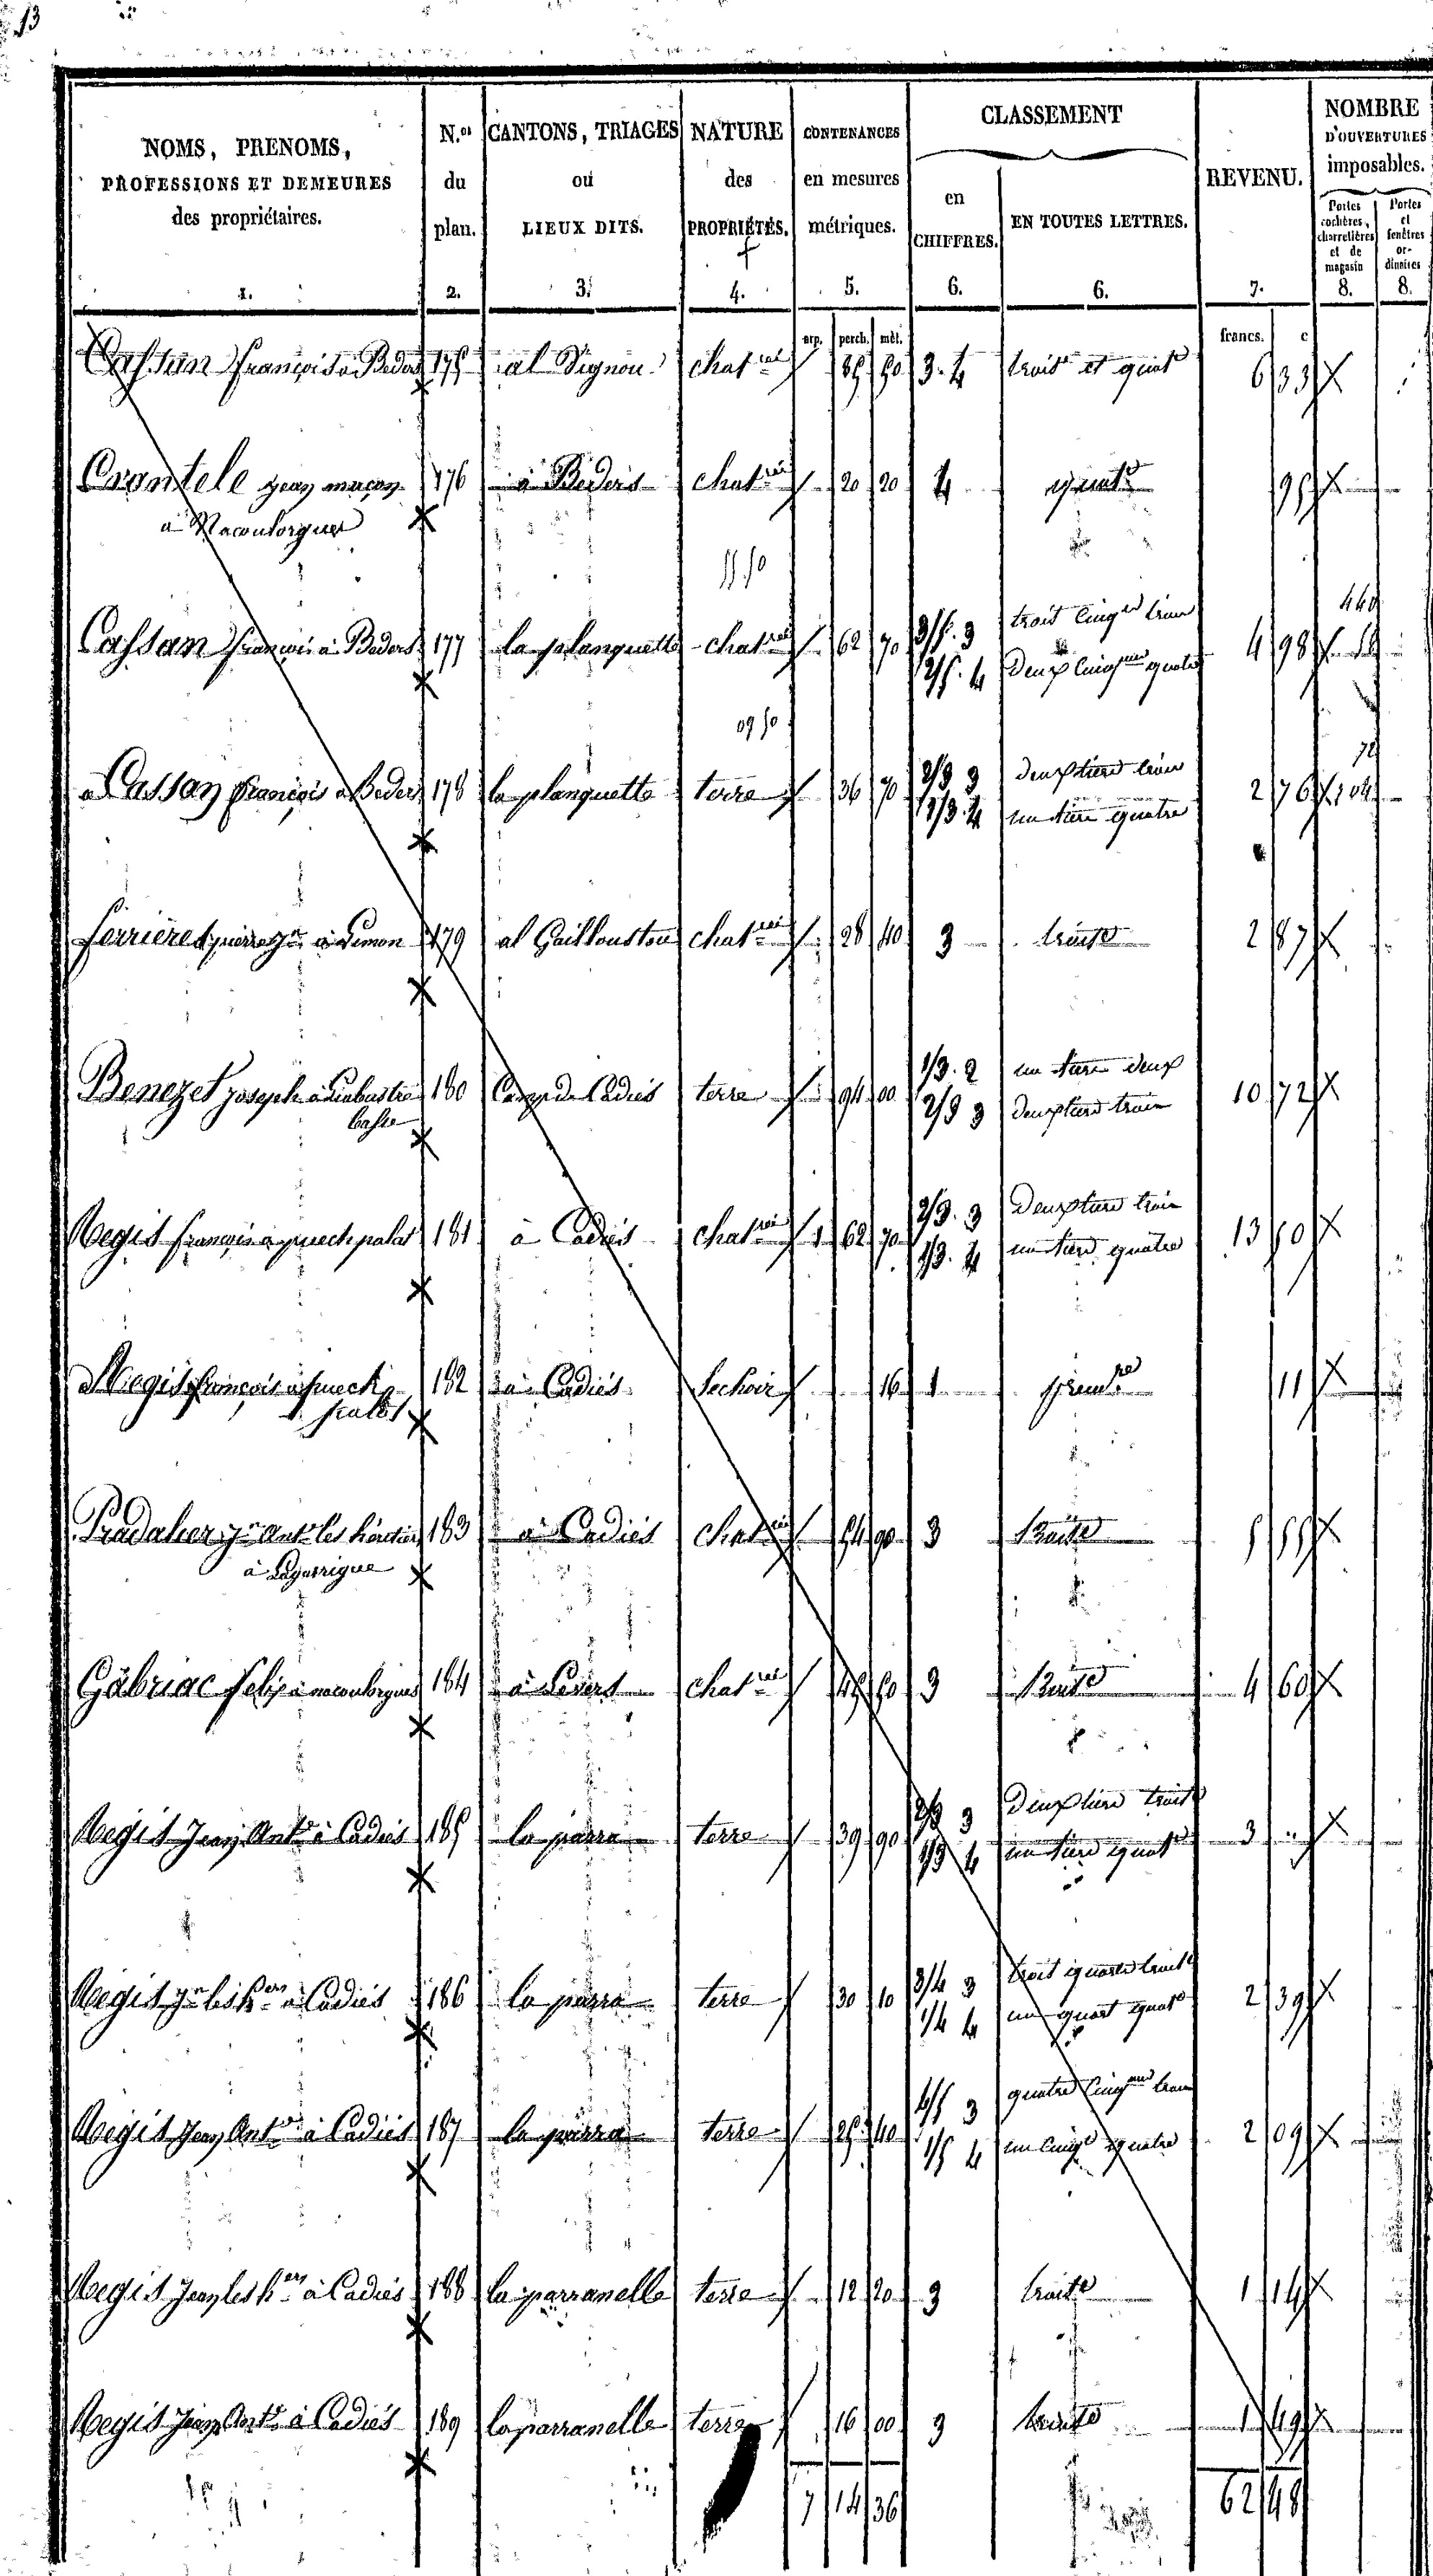 13
NOMS, PRENOMS,
PROFESSIONS ET DEMEURES
des propriétaires.
1.
N.os
du
plan.
2.
CANTONS, TRIAGES
ou
LIEUX DITS.
3.
NATURE
des
PROPRIÉTÉS.
4.
CONTENANCES
en mesures
métriques.
5.
CLASSEMENT
en
CHIFFRES.
6.
EN TOUTES LETTRES.
6.
REVENU.
7.
NOMBRE
D'OUVERTURES
imposables.
Portes cochères, charretières et de magasin
8.
Portes et fenêtres ordinaires
8.
arp. perch. mèt. francs. c
François à 175 al chat 3. 4 trois et quat 6 33
Jean maçon 176 à chat rai 20 20 4 quat 95
à
Cassan françois à Beders 177 la planquette chat 62 70 3/5. 3 trois cinq 4 98
2/5. 4 deux cinq quatre
09 50
Cassan françois à Beders 178 la planquette terre 36 70 2/3 3 deux tiers trois 2 76
1/3. 4 un tiers quatre
ferrières pierre à 179 al chat rai 28 40 3 trois 2 87
Benezet Joseph à 180 Camp de Cadiès terre 94 00 1/3. 2 un tiers deux 10 72
basse 2/3 3 deux tiers trois
Regis françois à puech palat 181 à Cadiès chat rai 1 62 70 2/3. 3 deux tiers trois 13 50
1/3. 4 un tiers quatre
Regis françois à puech 182 à Cadiès Sechoir 16 1 prem 11
palat
Pradalier Jn Ante les héritiers 183 à Cadiès chat 54 90 3 trois 5 55
à Lagarrigue
Gabriac felix à 184 à chat 45 50 3 trois 4 60
Regis Jean Ante à Cadiès 185 la parra terre 39 90 2/3 3 deux tiers trois 3
1/3 4 un tiers quat
Regis Jn les hers à Cadiès 186 la parra terre 30 10 3/4 3 trois quarts trois 2 39
1/4 4 un quart quat
Regis Jean Ante à Cadiès 187 la parra terre 25 40 4/5 3 quatre cinq trois 2 09
1/5 4 un cinq quatre
Regis Jean les hers à Cadiès 188 la parranelle terre 12 20 3 trois 1 14
Regis Jean Ante à Cadiès 189 la parranelle terre 16 00 3 trois 1 49
7 14 36 62 48